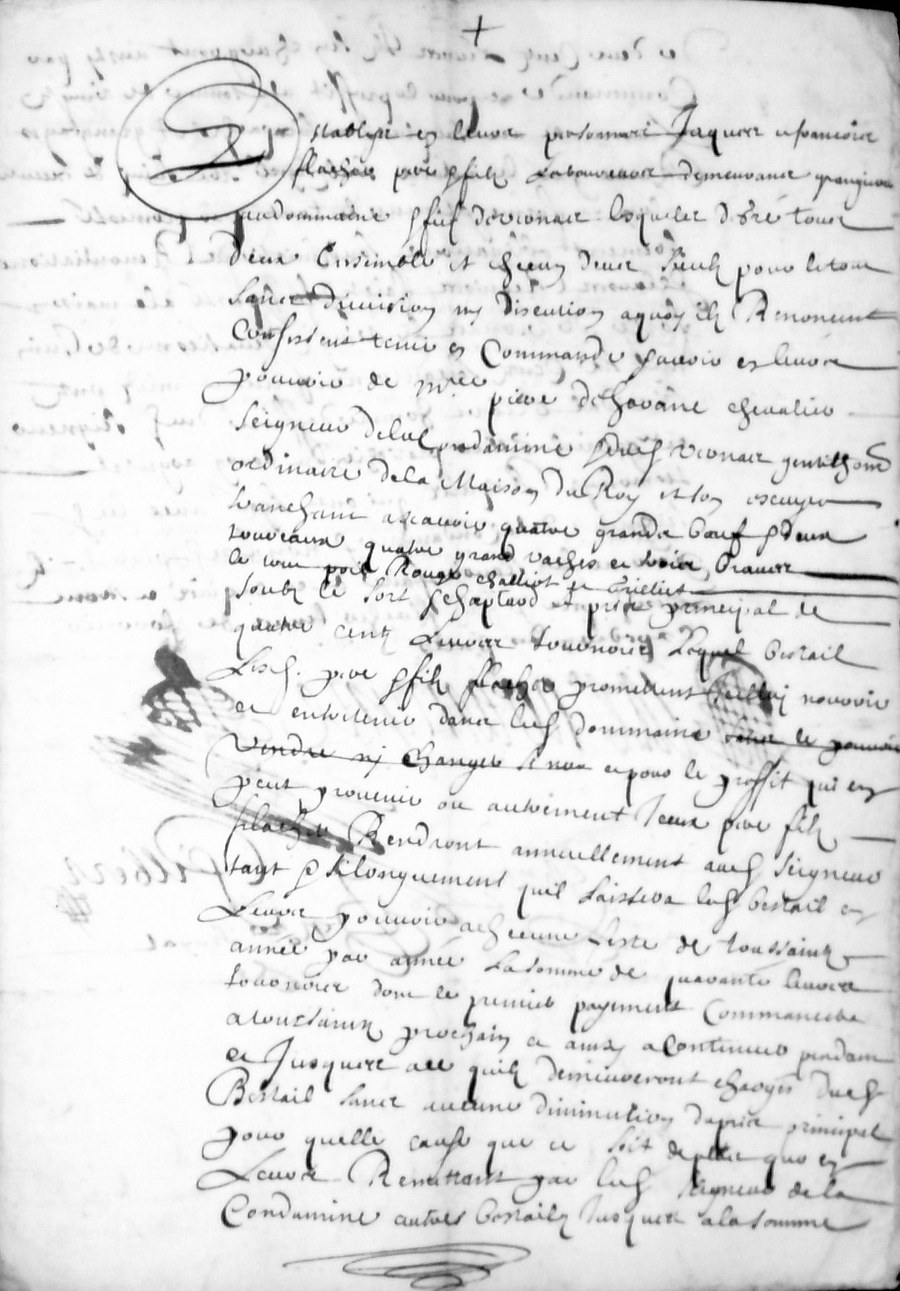 Establys en leurs personnes Jacques et francois
flachat pere & filz Laboureurs demeurans grangiers
au dommaine dud vernair lesquelz de gré tous
deux Ensemble et checun deux seul pour le tout
sans division ny discution a quoy ilz Renoncent
Confessent tenir en Commande & avoir en leurs
pouvoir de mre pierre dehavane chevalier
Seigneur de la Condamine dud vernair gentilhome
ordinaire de la Maison du Roy et son escuyer
tranchant ascavoir quatre grands bœuf & deux
toureaux quatre grand vaches et trois braves
le tout poil Rouge
soubz le sort & chaptard & prix principal de
quatre centz Livres tournois Lequel bestail
Lesd. pere & filz flachat promettent nourrir
et entretenir dans lesd dommaine sans le pouvoir
vendre ny changer et pour le proffit qui en
peut provenir ou autrement Iceux pere filz
flachat Rendront annuellement aud Seigneur
tant & sy longuement quil Laissera led bestail en
Leurs pouvoir a checune feste de toussaintz
année par année La somme de quarante livres
tournois dont le premier payement Commancera
a toussaintz prochain et ainsy a Continuer pendant
et Jusques ace quilz demeureront chargés dud
Bestail sans aucune diminution du prix principal
pour quelle cause que ce soit de perte quo en
Leurs Remettant par led seigneur de la
Condamine autres bestailz Jusques a la somme